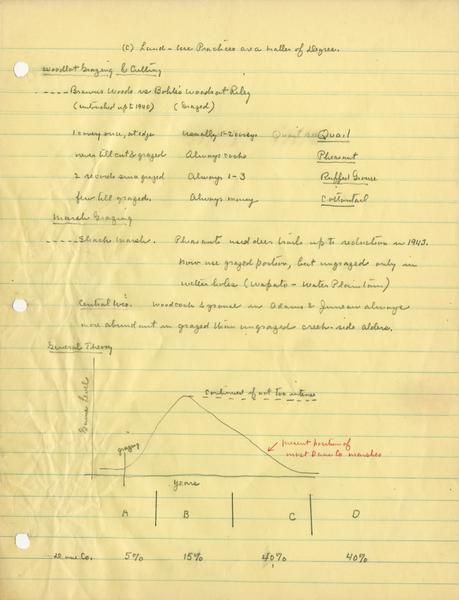 (C) Land-Use Practices as a matter of degree.
Woodlot Grazing & Cutting
----- Brewers Woods vs Bohle's Woods at Riley
(untouched up to 1940) (Grazed)
1 covey once, at edge usually 1-2 coveys Quail Quail
never till cut & grazed Always cocks Pheasant
2 records since grazed Always 1-3 Ruffed Grouse
few till grazed. Always many Cottontail
Marsh Grazing
----- Shack Marsh. Pheasants used deer trails up to reduction in 1943.
Now use grazed portion, but ungrazed only in
water holes (Wapato - Water Plantain)
Central Wis. Woodcock & grouse in Adams & Juneau always
more abundant in grazed than ungrazed creek-side alders.
General Theory
Game Level
continued if not too intense
grazing
present position of
most Dane Co. marshes
years
A B C D
Dane Co. 5% 15% 40% 40%